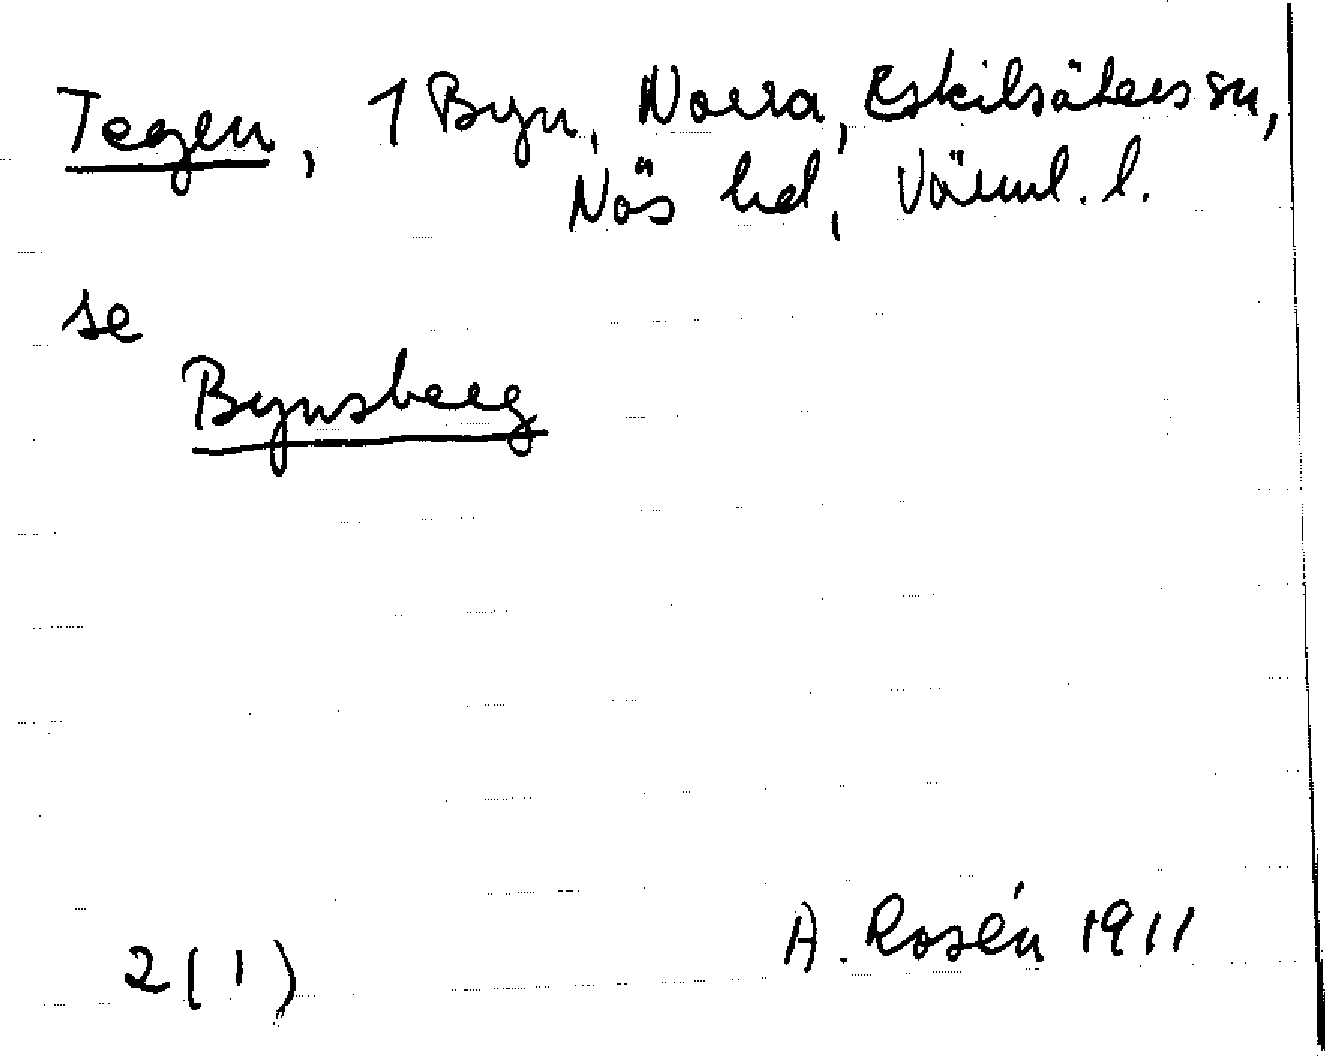 Tegen, 1 Byn, Norra, Eskilsäters sn,
Näs hd, Värml. l.
se
Bynsberg
2(1)
A. Rosén 1911